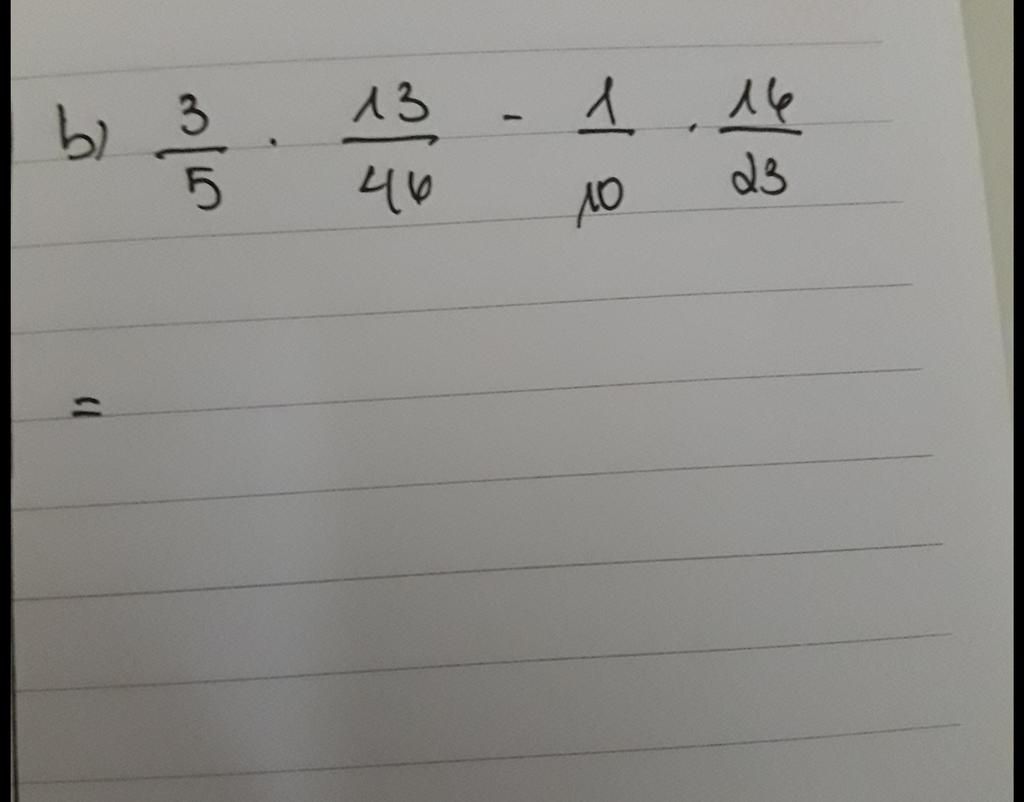 b) 3/5 · 13/46 - 1/10 · 16/23
=